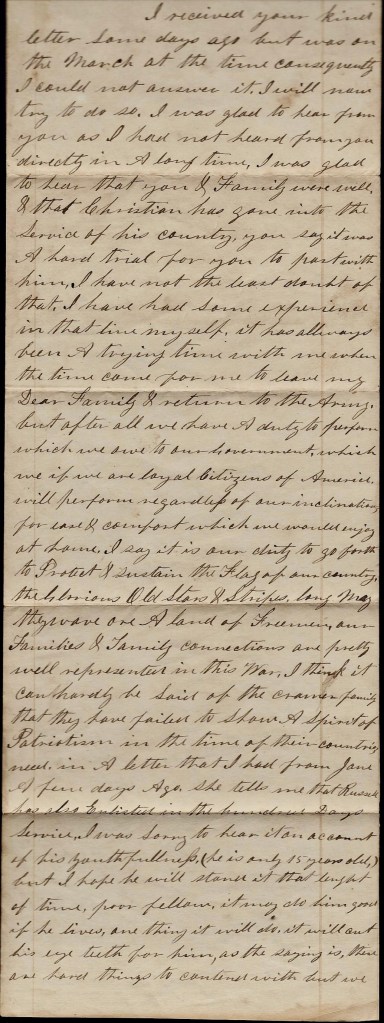 I received your kind
letter some days ago but was on
the March at the time consequently
I could not answer it. I will now
try to do so. I was glad to hear from
you as I had not heard from you
directly in A long time, I was glad
to hear that you & Family were well,
& that Christian has gone into the
Service of his country, you say it was
A hard trial for you to part with
him, I have not the least doubt of
that, I have had some experience
in that line myself, it has allways
been A trying time with me when
the time come for me to leave my
Dear Family & return to the Army.
but after all we have A duty to perform
which we owe to our Government, which
we if we are loyal Citizens of America
will perform regardless of our inclination
for ease & comfort which we would enjoy
at home, I say it is our duty to go forth
to Protect & sustain the Flag of our country,
the Glorious Old Stars & Stripes, long May
they wave ore A land of Freemen, our
Families & Family connections are pretty
well represented in this War, I think it
can hardly be said of the cramer family
that they have failed to show A spirit of
Patriotism in the time of their countries
need. in A letter that I had from Jane
A few days Ago, she tells me that Russell
has also Enlisted in the hundred Days
Service, I was sorry to hear it on account
of his youthfullness, (he is only 15 years old,)
but I hope he will stand it that lenght
of time, poor fellow, it may do him good
if he lives, one thing it will do, it will cut
his eye teeth for him, as the saying is, there
are hard things to contend with but we